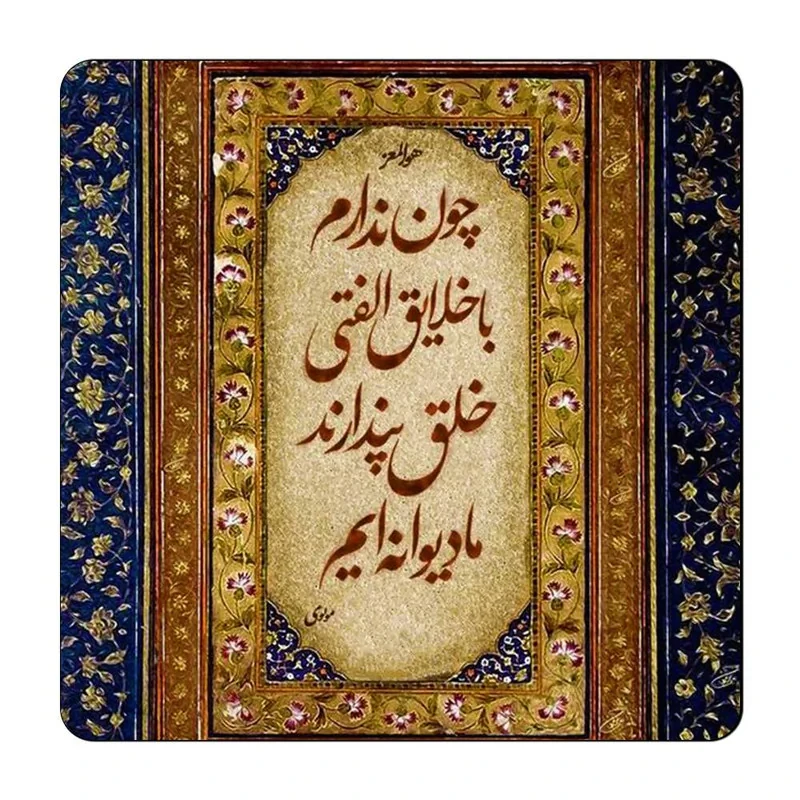 هوالمعز
چون ندارم
با خلایق الفتی
خلق پندارند
ما دیوانه ایم
مولوی